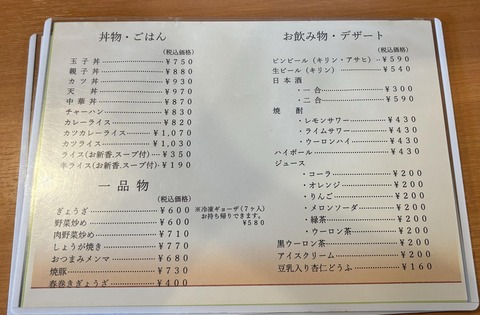 丼物・ごはん
(税込価格)
玉子丼 ¥750
親子丼 ¥880
カツ丼 ¥930
天丼 ¥920
中華丼 ¥870
チャーハン ¥830
カレーライス ¥820
カツカレーライス ¥1,070
カツライス ¥1,030
ライス(お新香、スープ付) ¥350
半ライス(お新香、スープ付) ¥190
一品物
(税込価格)
ぎょうざ ¥600
野菜炒め ¥600
肉野菜炒め ¥710
しょうが焼き ¥770
おつまみメンマ ¥680
焼豚 ¥730
春巻きぎょうざ ¥400
※冷凍ギョーザ(7ヶ入)
お持ち帰りできます。
¥580
お飲み物・デザート
(税込価格)
ビンビール(キリン・アサヒ) ¥590
生ビール(キリン) ¥540
日本酒
・一合 ¥300
・二合 ¥590
焼酎
・レモンサワー ¥430
・ライムサワー ¥430
・ウーロンハイ ¥430
ハイボール ¥430
ジュース
・コーラ ¥200
・オレンジ ¥200
・りんご ¥200
・メロンソーダ ¥200
・緑茶 ¥200
・ウーロン茶 ¥200
黒ウーロン茶 ¥200
アイスクリーム ¥200
豆乳入り杏仁どうふ ¥160